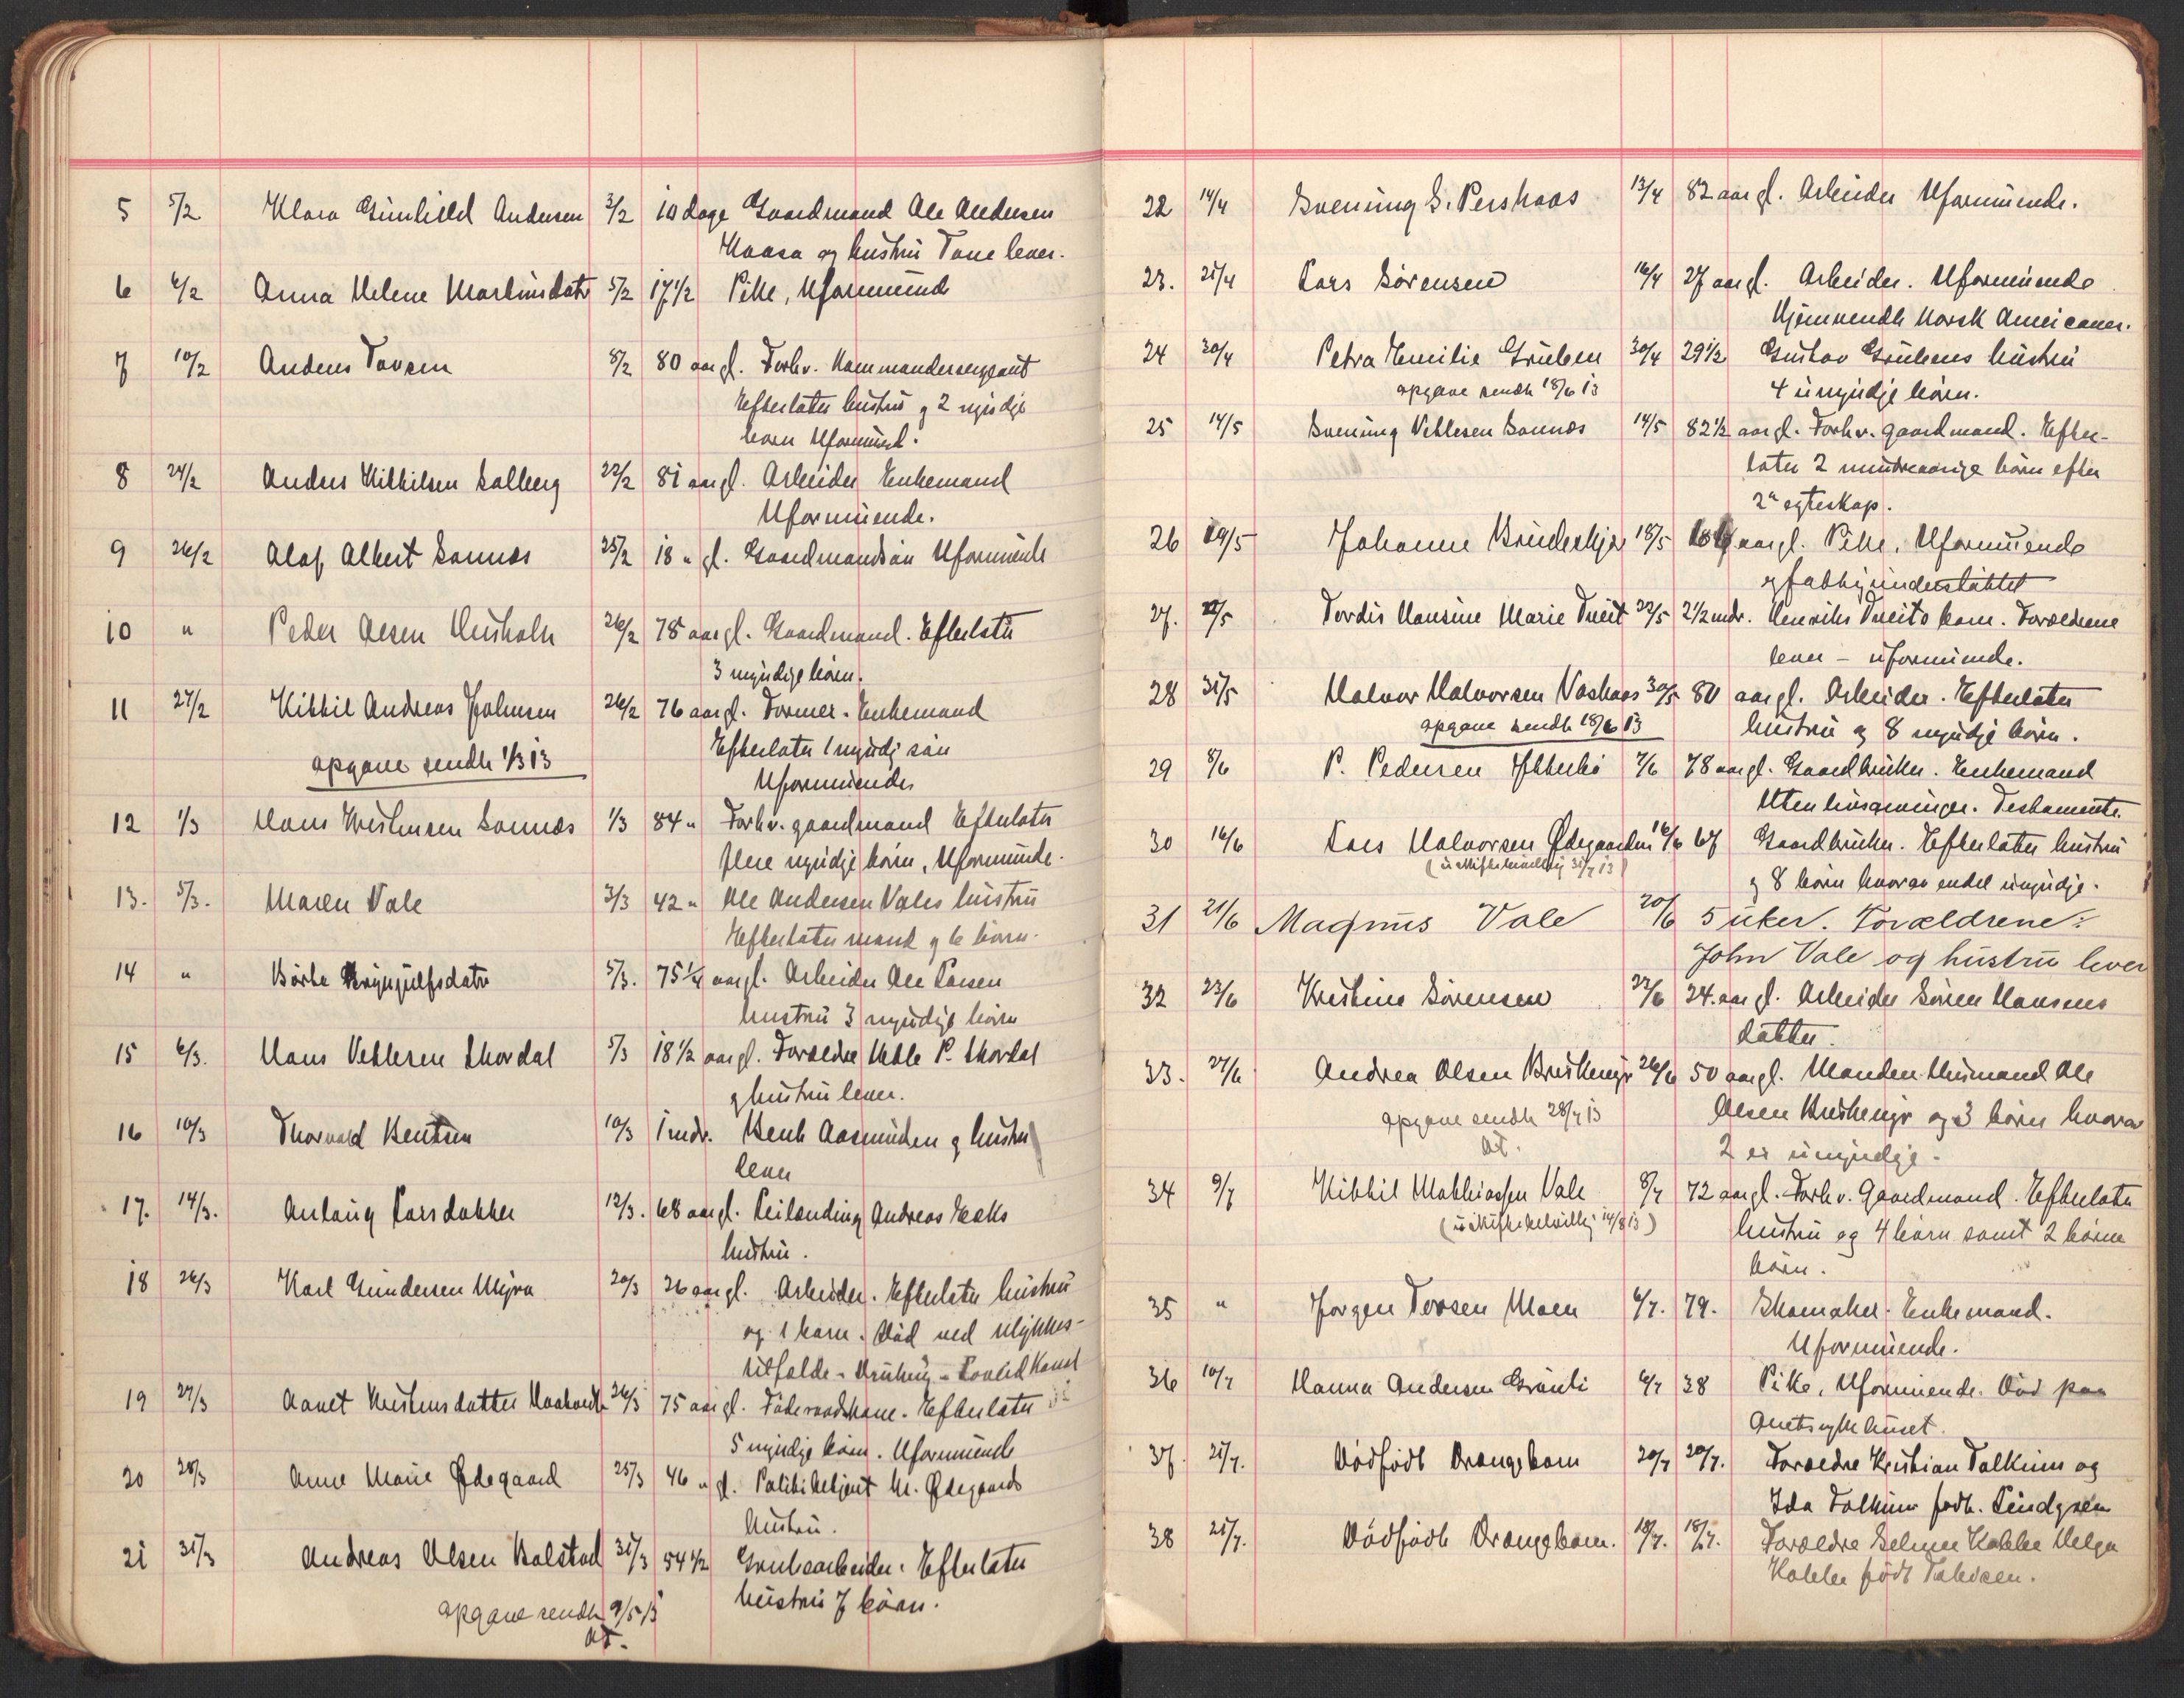 5 5/2 Klara Gunhild Andersen 3/2 10 dage Gaardmand Ole Andersen
Kaasa og hustru Tone lever.
6 6/2 Anna Helene Martinsdatr 5/2 17 1/2 Pike, Uformuend
7 10/2 Anders Tovsen 8/2 80 aar gl. Forhv. Kommandersergeant
Efterlater hustru g 2 myndige
born Uformuend.
8 24/2 Anders Kittilsen Solberg 22/2 81 aar gl. Arbeider Enkemand
Uformuende.
9 26/2 Olaf Albert Sannes 25/2 18 " gl. Gaardmandsøn Uformuende
10 " Peder Olsen Husholn 26/2 78 aar gl. Gaardmand. Efterlater
3 myndige børn.
11 27/2 Kittil Andreas Johnsen 26/2 76 aar gl. Former. Enkemand
Efterlater 1 myndig søn
opgave sendt 1/3 13
Uformuende
12 1/3 Hans Kristensen Sannes 1/3 84 " Forhv. gaardmand Efterlater
flere myndige børn, Uformuende.
13. 5/3. Maren Vale 3/3 42 " Ole Andersen Vales hustru
Efterlater mand g 6 børn.
14 " Børte Brynjulfsdatr 5/3. 75 1/4 aar gl. Arbeider Ole Larsen
hustru 3 myndige børn
15 6/3. Hans Vetlesen Skordal 5/3 18 1/2 aar gl. Forældre Vetle P. Skordal
g hustru lever.
16 10/3 Thorvald Bentsen 10/3 1 mdr. Bent Aasmundsen g hustru
lever
17. 14/3. Anlaug Larsdatter 12/3. 68 aar gl. Leilending Andreas Eeks
hustru.
18 26/3 Karl Gundersen Myra 20/3 26 aar gl. Arbeider. Efterlater hustru
og 1 barn. Død ved ulykkes-
tilfælde - Drukning -
19 27/3 Aanet Kristensdatter 26/3 75 aar gl. Føderaadskone. Efterlater
5 myndige børn. Uformuende
20 28/3 Anne Marie Ødegaard 25/3 46 " gl. Politibetjent H. Ødegaards
hustru.
21 31/3 Andreas Olsen Bolstad 31/3 54 1/2 Grubearbeider. Efterlater
hustru 7 børn.
opgave sendt 9/5 13
AT.
22 14/4 Svenung S. Pershaas 13/4 82 aar gl. Arbeider Uformuende.
23. 21/4 Lars Sørensen 16/4 27 aar gl. Arbeider. Uformuende
Hjemvendt Norsk Americaner.
24 30/4 Petra Emilie Gruben 30/4 29 1/2 Gustav Grubens hustru
opgave sendt 18/6 13 4 umyndige børn.
25 14/5 Svenung Vetlesen Sannes 14/5 82 1/2 aar gl. Forhv. gaardmand. Efter-
later 2 mindreaarige børn efter
2et egteskap.
26 19/5 Johanne 18/5 aar gl. Pike, Uformuende
g fattigunderstøttet
27. 22/5 Tordis Hansine Marie Tveit 22/5 2 1/2 mdr. Henriks Tveits barn. Forældrene
lever - uformuende.
28 31/5 Halvor Halvorsen Vashaas 30/5 80 aar gl. Arbeider. Efterlater
opgave sendt 18/6 13 hustru og 8 myndige børn.
29 8/6 P. Pedersen Ytterbø 7/6 78 aar gl. Gaardbruker. Enkemand
Uten livsarvinger. Testamente
30 16/6 Lars Halvorsen Ødegaarden 16/6 67 Gaardbruker. Efterlater hustru
(uskiftebevillig 31/7 13)
g 8 børn hvorav endel umyndige.
31 21/6 Magnus Vale 20/6 5 uker. Forældrene:
John Vale og hustru lever
32 23/6 Kristine Sørensen 22/6 24. aar gl. Arbeider Søren Hansens
datter.
33. 27/6 Andrea Olsen Breskengr 26/6 50 aar gl. Manden Husmand Ole
opgave sendt 28/7 13 Olsen Breskengr og 3 børn hvorav
AT. 2 er umyndige.
34 9/7 Kittil Mathiassen Vale 8/7 72 aar gl. Forhv. Gaardmand. Efterlater
(uskiftebevillig 14/8 13) hustru og 4 børn samt 2 børne
børn.
35 " Jørgen Tovsen Moen 6/7. 79. Skomaker. Enkemand.
Uformuende.
36 10/7 Hanna Andersen Grønli 6/7 38 Pike, Uformuende. Død paa
Amtssykehuset.
37. 21/7. Dødfødt Drengebarn 20/7 20/7. Forældre Kristian Folkum og
Ida Folkum født. Lindgren
38 21/7. Dødfødt Drengebarn. 18/7. 18/7. Forældre Helga
født